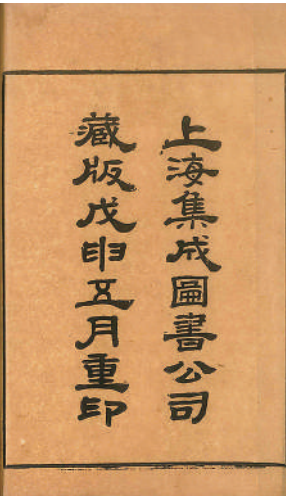 上海集成圖書公司
藏版戊申五月重印